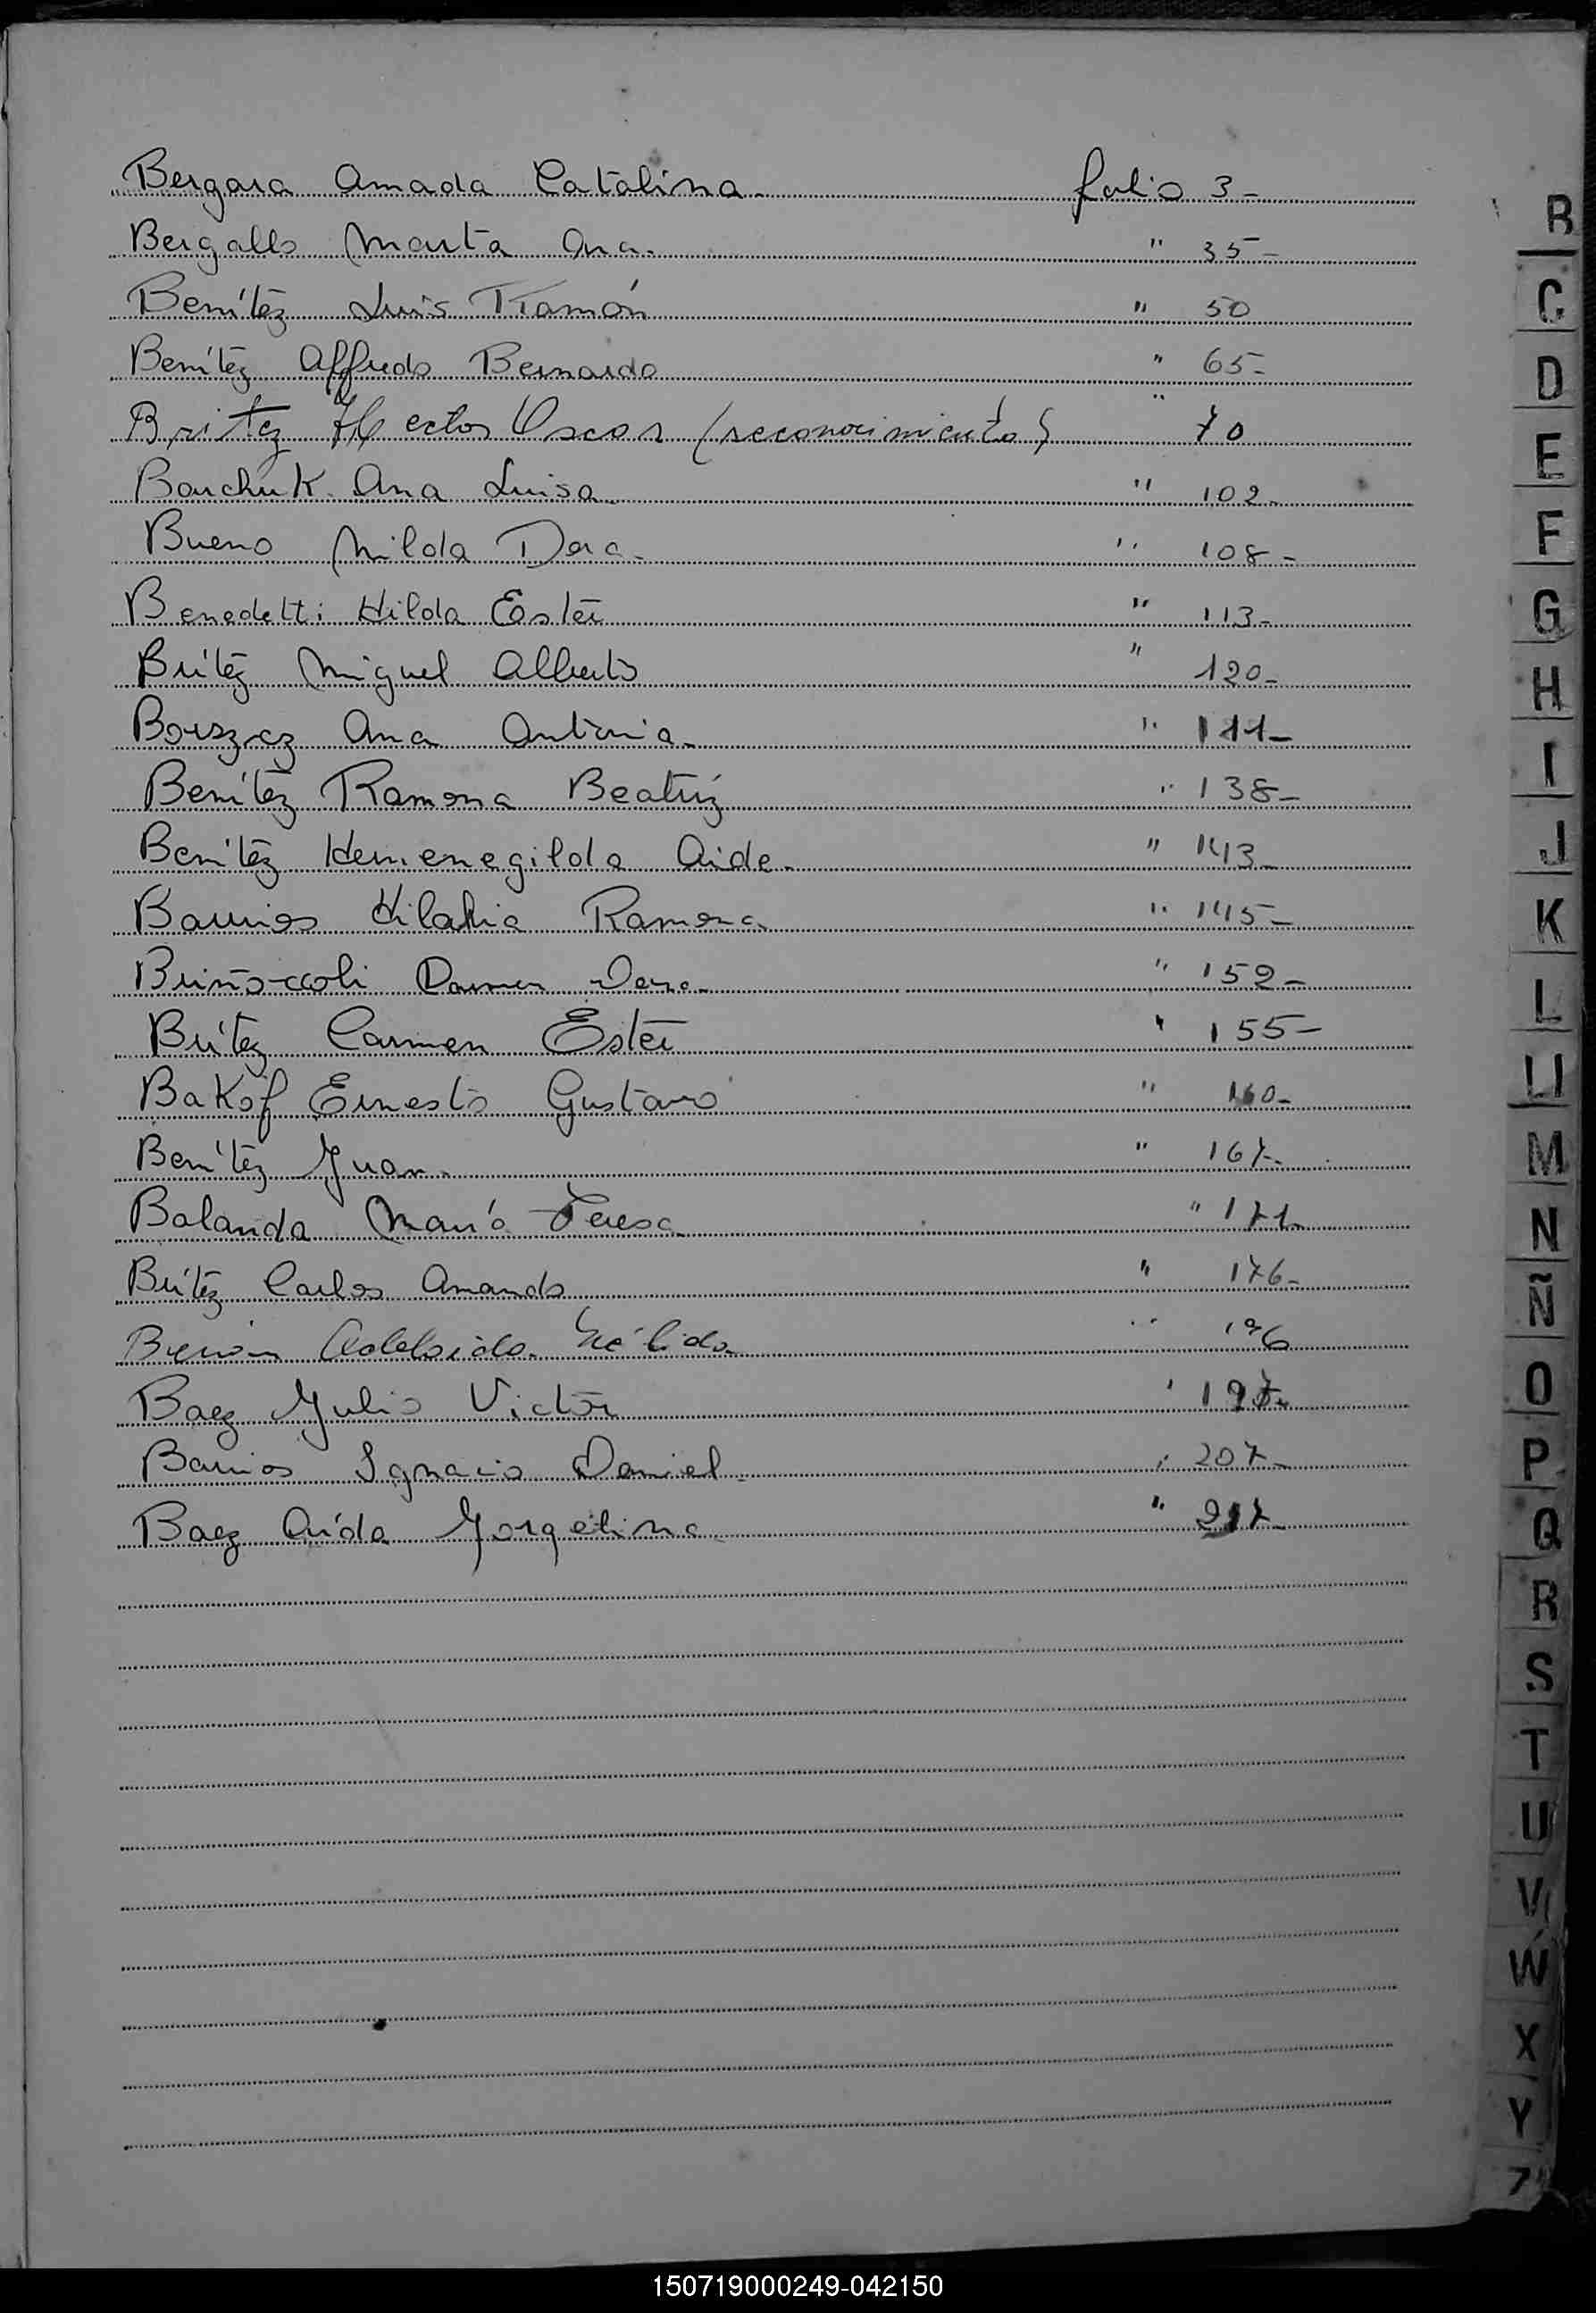 Bergara Amada Catalina folio 3-
Bergallo Marta Ana. " 35-
Benítez Luis Ramón " 50
Benítez Alfredo Bernardo " 65-
Britez Hector Oscar (reconocimiento) " 70
Borchuk Ana Luisa " 102-
Bueno Nilda Dora- " 108-
Benedetti Hilda Ester " 113-
Britez Miguel Alberto " 120-
Ana Antonia- " 111-
Benítez Ramona Beatriz " 138-
Benítez Hermenegilda Aide- " 143-
Barrios Hilaria Ramona " 145-
" 152-
Britez Carmen Ester " 155-
Bakof Ernesto Gustavo " 160-
Benítez Juan- " 167-
Balanda María Teresa " 171-
Britez Carlos Amando " 176-
Nélida " 196
Baez Julio Victor " 197-
Barrios Ignacio Daniel- " 207-
Baez Aída Jorgelina " 217-
B
C
D
E
F
G
H
I
J
K
L
Ll
M
N
Ñ
O
P
Q
R
S
T
U
V
W
X
Y
Z
150719000249-042150